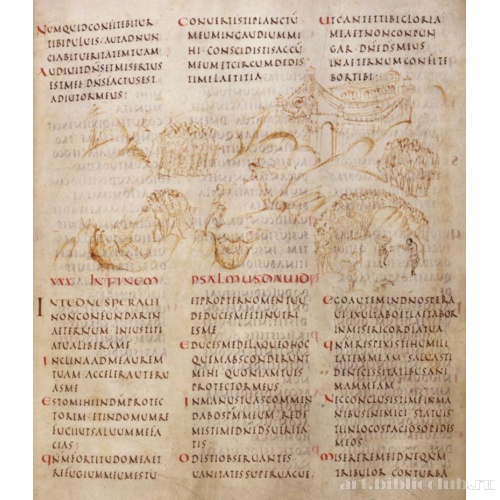 NUMQUIDCONFITEBITUR
TIBIPULUIS AUTADNUN
CIABITUERITATEMTUAM
AUDIUITDN̄SETMISERTUS
ESTMEI DN̄SFACTUSEST
ADIUTORMEUS
CONUERTISTIPLANCTŪ
MEUMINGAUDIUMMI
HI CONSCIDISTISACCŪ
MEUMETCIRCUMDEDIS
TIMELAETITIA
UTCANTETTIBIGLORIA
MEAETNONCONPUN
GAR DN̄EDS̄MEUS
INAETERNUMCONFITE
BORTIBI
XXX INFINEM PSALMUSDAUID
INTEDN̄ESPERAUI
NONCONFUNDARIN
AETERNUM INIUSTITI
ATUALIBERAME
INCLINAADMEAUREM
TUAM ACCELERAUTERU
ASME
ESTOMIHIINDM̄PROTEC
TOREM ETINDOMUMRE
FUGIIUTSALUUMMEFA
CIAS
QNMFORTITUDOMEAET
REFUGIUMMEUMESTU
ETPROPTERNOMENTUŪ
DEDUCESMEETENUTRI
ESME
EDUCESMEDELAQUEOHOC
QUEMABSCONDERUNT
MIHI QUONIAMTUES
PROTECTORMEUS
INMANUSTUASCOMMEN
DABOSPM̄MEUM REDE
MISTIMEDN̄EDS̄UERITA
TIS
ODISTIOBSERUANTES
UANITATESSUPERUACUE
EGOAUTEMINDN̄OSPERA
UI EXULTABOETLAETABOR
INMISERICORDIATUA
QNMRESPEXISTIHUMILI
TATEMMEAM SALUASTI
DENECESSITATIBUSANI
MAMMEAM
NECCONCLUSISTIMEINMA
NIBUSINIMICI STATUIS
TIINLOCOSPACIOSOPEDES
MEOS
MISEREREMEIDN̄EQNM
TRIBULOR CONTURBA
art.biblioclub.ru